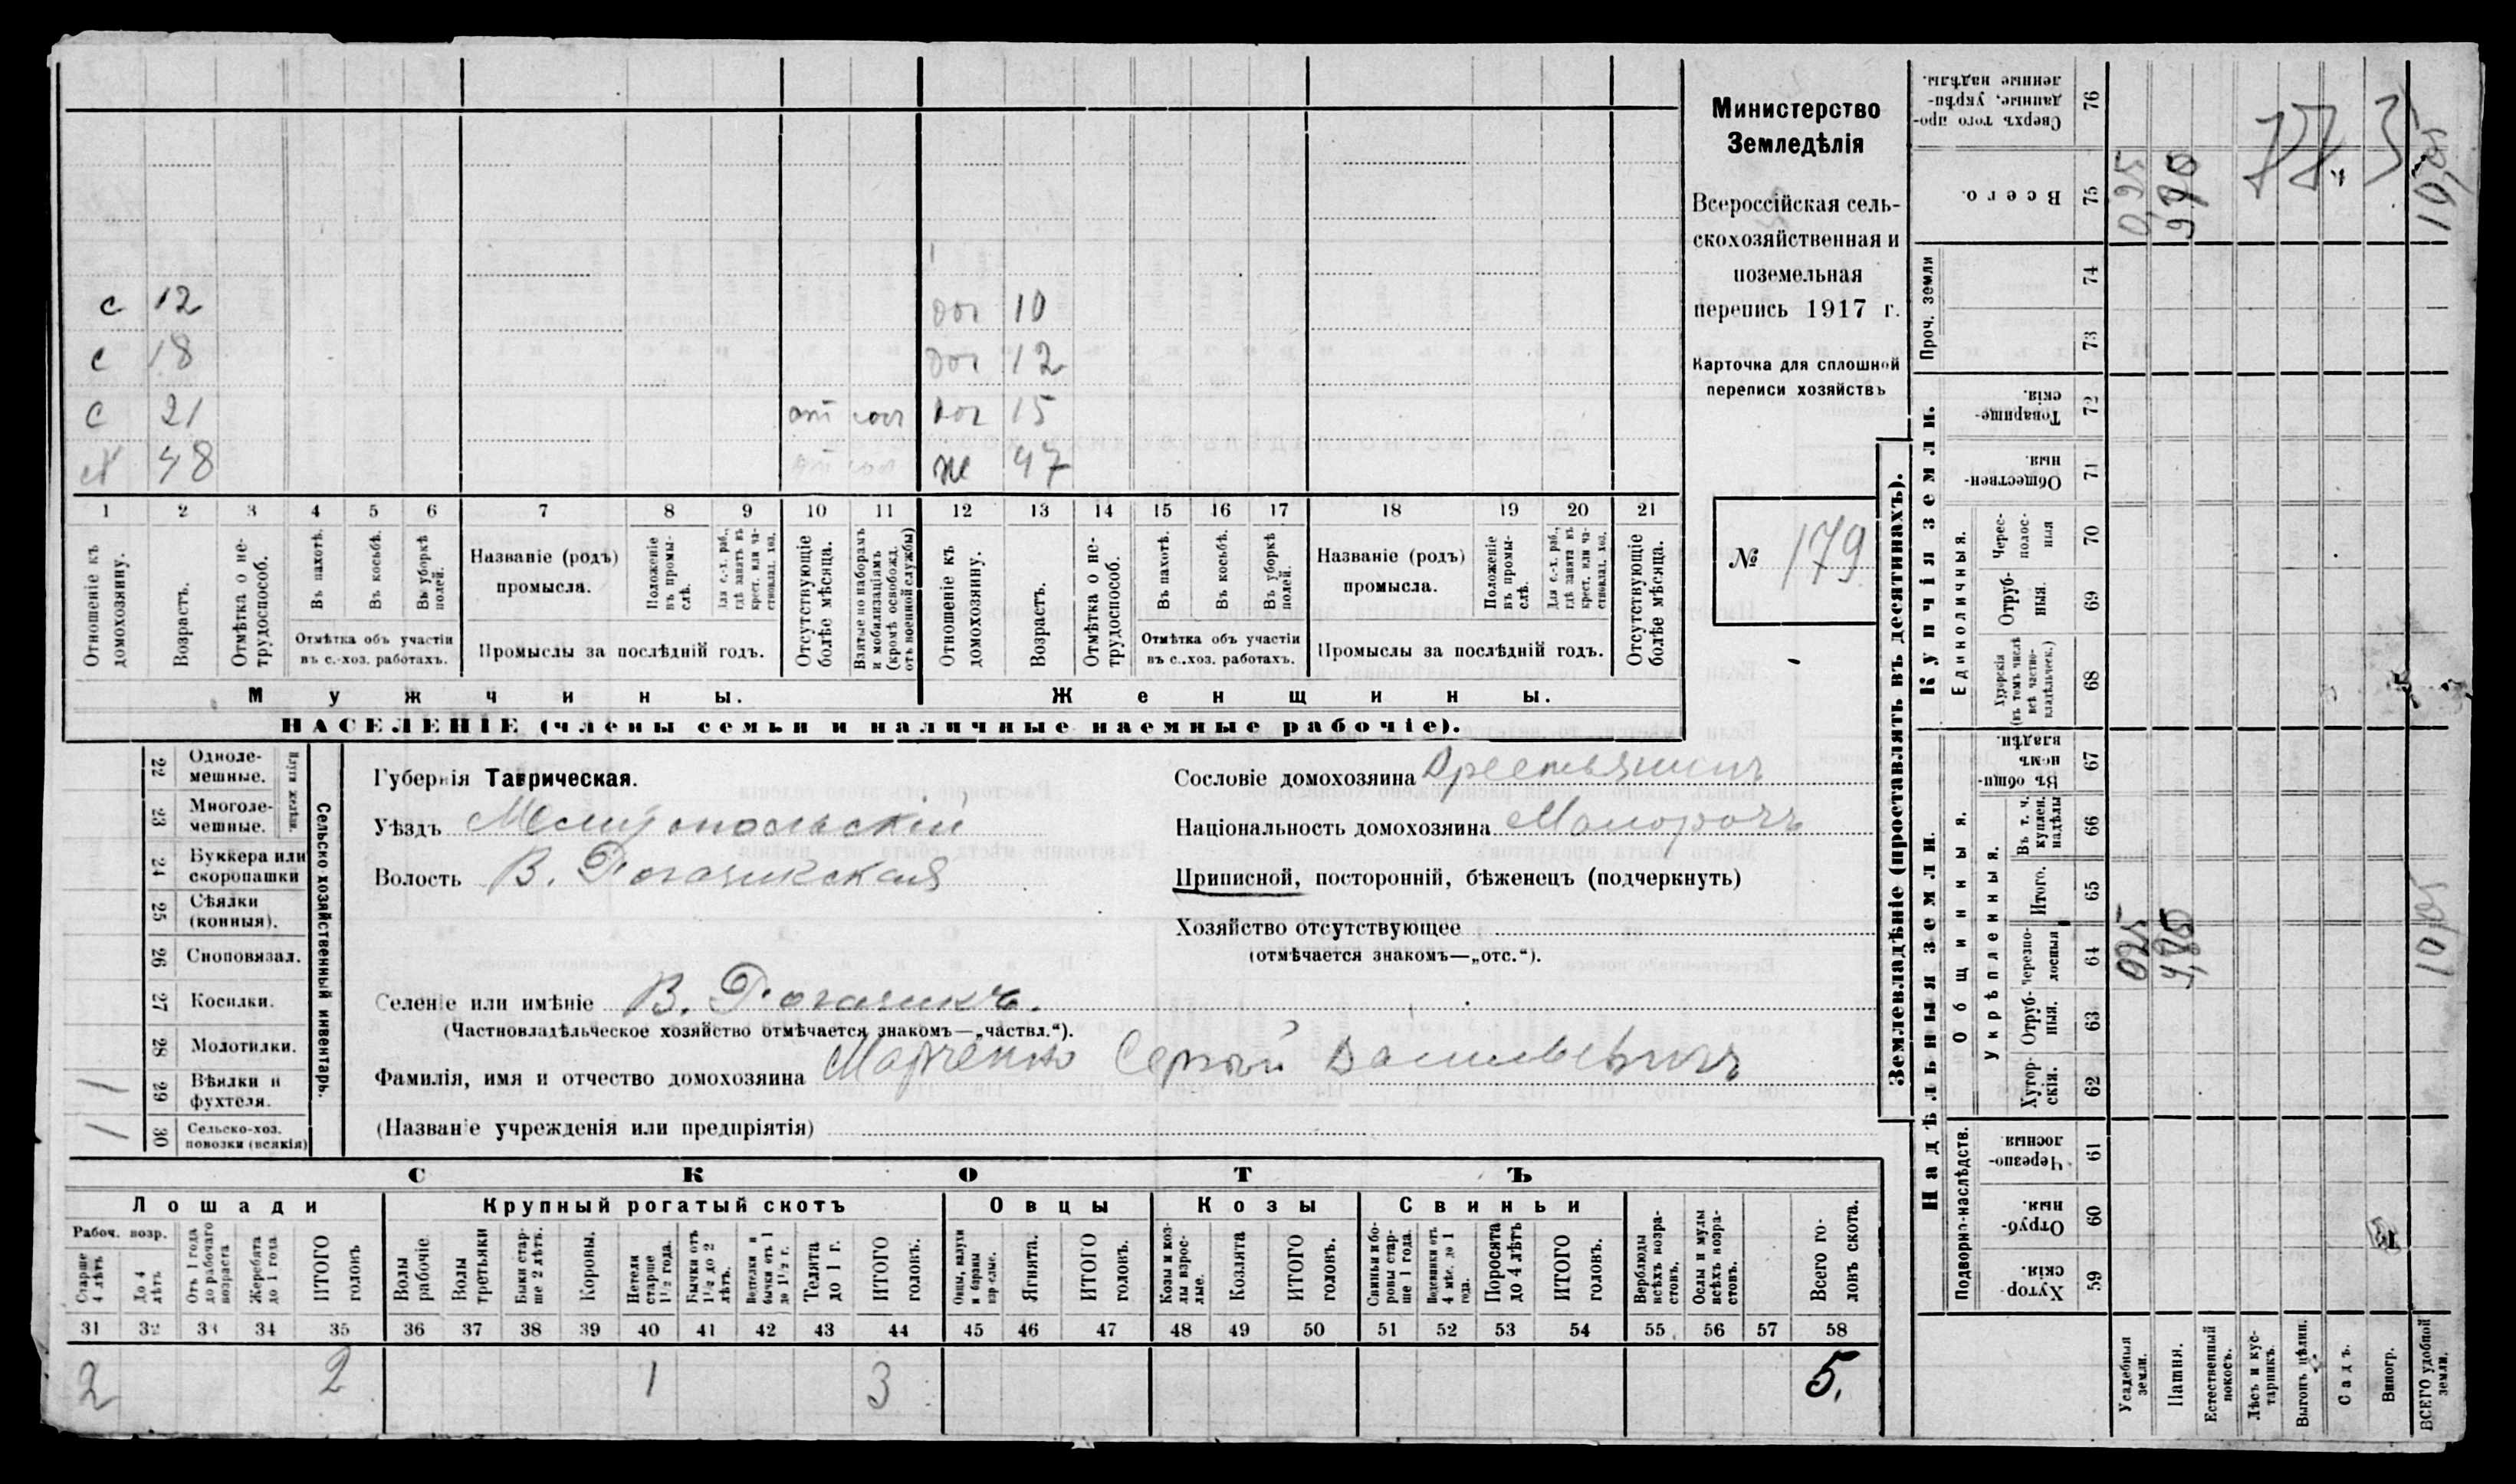 с 12 дог 10
с 18 дог 12
с 21 от сол дог 15
х 48 же 47
1 2 3 4 5 6 7 8 9 10 11 12 13 14 15 16 17 18 19 20 21
Отношеніе къ домохозяину.
Возрастъ.
Отмѣтка о не-
трудоспособ.
Въ пахотѣ.
Въ косьбѣ.
Въ уборкѣ полей.
Отмѣтка объ участіи
въ с.-хоз. работахъ.
Названіе (родъ)
промысла.
Положеніе въ промы-
слѣ.
Для с.-х. раб.,
гдѣ занятъ въ
крест. или ча-
стновлад. хоз.
Промыслы за послѣдній годъ.
Отсутствующіе
болѣе мѣсяца.
Взятые по наборамъ
и мобилизаціямъ
(кромѣ освобожд.
отъ военной службы)
Отношеніе къ домохозяину.
Возрастъ.
Отмѣтка о не-
трудоспособ.
Въ пахотѣ.
Въ косьбѣ.
Въ уборкѣ полей.
Отмѣтка объ участіи
въ с.-хоз. работахъ.
Названіе (родъ)
промысла.
Положеніе въ промы-
слѣ.
Для с.-х. раб.,
гдѣ занята въ
крест. или ча-
стновлад. хоз.
Промыслы за послѣдній годъ.
Отсутствующіе
болѣе мѣсяца.
Мужчины. Женщины.
НАСЕЛЕНІЕ (члены семьи и наличные наемные рабочіе).
Министерство
Земледѣлія
Всероссійская сель-
скохозяйственная и
поземельная
перепись 1917 г.
Карточка для сплошной
переписи хозяйствъ
№ 179
22 Одноле-
мешные.
23 Многоле-
мешные.
Плуги желѣзн.
24 Буккера или
скоропашки
25 Сѣялки
(конныя).
26 Сноповязал.
27 Косилки.
28 Молотилки.
1 29 Вѣялки и
фухтеля.
1 30 Сельско-хоз.
повозки (всякія)
Сельско-хозяйственный инвентарь.
Губернія Таврическая.
Уѣздъ Мелитопольскій
Волость В. Рогачикская
Сословіе домохозяина Крестьянинъ
Національность домохозяина Малоросъ
Приписной, посторонній, бѣженецъ (подчеркнуть)
Хозяйство отсутствующее
(отмѣчается знакомъ—„отс.“).
Селеніе или имѣніе В. Рогачикъ.
(Частновладѣльческое хозяйство отмѣчается знакомъ—„частвл.“).
Фамилія, имя и отчество домохозяина Марченко Сергѣй Васильевичъ
(Названіе учрежденія или предпріятія)
СКОТЪ
Лошади Крупный рогатый скотъ Овцы Козы Свиньи
Рабоч. возр.
Старше 4 лѣтъ
До 4 лѣтъ
Отъ 1 года до рабочаго возраста
Жеребята до 1 года
ИТОГО головъ
Волы рабочіе
Волы третьяки
Быки стар-
ше 2 лѣтъ.
Коровы.
Нетели старше 1½ года.
Бычки отъ 1½ до 2 лѣтъ.
Телята до 1 г.
ИТОГО головъ.
Овцы, валухи и бараны взрослые.
Ягнята.
ИТОГО головъ.
Козы и коз-
лы взрос-
лые.
Козлята
ИТОГО головъ.
Свиньи и бо-
ровы стар-
ше 1 года.
Подсвинки отъ 4 мѣс. до 1 года.
Поросята до 4 лѣтъ
ИТОГО головъ.
Верблюды всѣхъ возра-
стовъ.
Ослы и мулы всѣхъ возра-
стовъ.
Всего го-
ловъ скота.
31 32 33 34 35 36 37 38 39 40 41 42 43 44 45 46 47 48 49 50 51 52 53 54 55 56 57 58
2 2 1 3 5.
Землевладѣніе (проставлять въ десятинахъ).
Купчія земли.
Надѣльныя земли.
Сверхъ того про-
данные, укрѣп-
ленные надѣлы.
76
Всего.
75
Проч. земли
74
73
Товарище-
скія.
72
Обществен-
ныя.
71
Единоличныя.
Черес-
полос-
ныя
70
Отруб-
ныя.
69
Хуторскія
(въ томъ числѣ
всѣ частно-
владѣльческ.)
68
Общинныя.
Въ общин-
номъ
владѣн.
67
Укрѣпленныя.
Въ т. ч.
куплен.
надѣлы
66
Итого.
65
Черезпо-
лосныя
64
Отруб-
ныя.
63
Хутор-
скія.
62
Подворно-наслѣдств.
Черезпо-
лосныя
61
Отруб-
ныя.
60
Хутор-
скія.
59
Усадебныя земли.
Пашня.
Естественный покосъ.
Лѣсъ и кус-
тарникъ.
Выгонъ цѣлин.
Садъ.
Виногр.
ВСЕГО удобной земли.